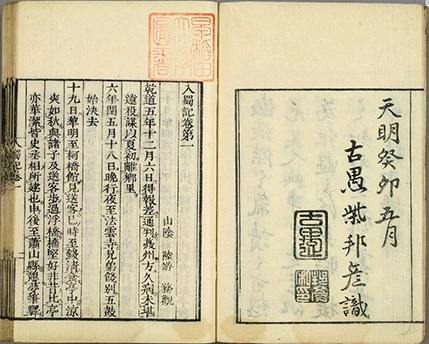 天明癸卯五月
古愚柴邦彥識
入蜀記卷第一
山陰 陸游 務觀
乾道五年十二月六日得報差通判夔州方久病未堪
遠役謀以夏初離鄉里
六年閏五月十八日晚行夜至法雲寺兄弟餞別五鼓
始決去
十九日黎明至柯橋館見送客巳時至錢清食亭中涼
爽如秋與諸子及送客步過浮橋橋堅好非昔比亭
亦華潔皆史丞相所建也申後至蕭山縣憩夢筆驛